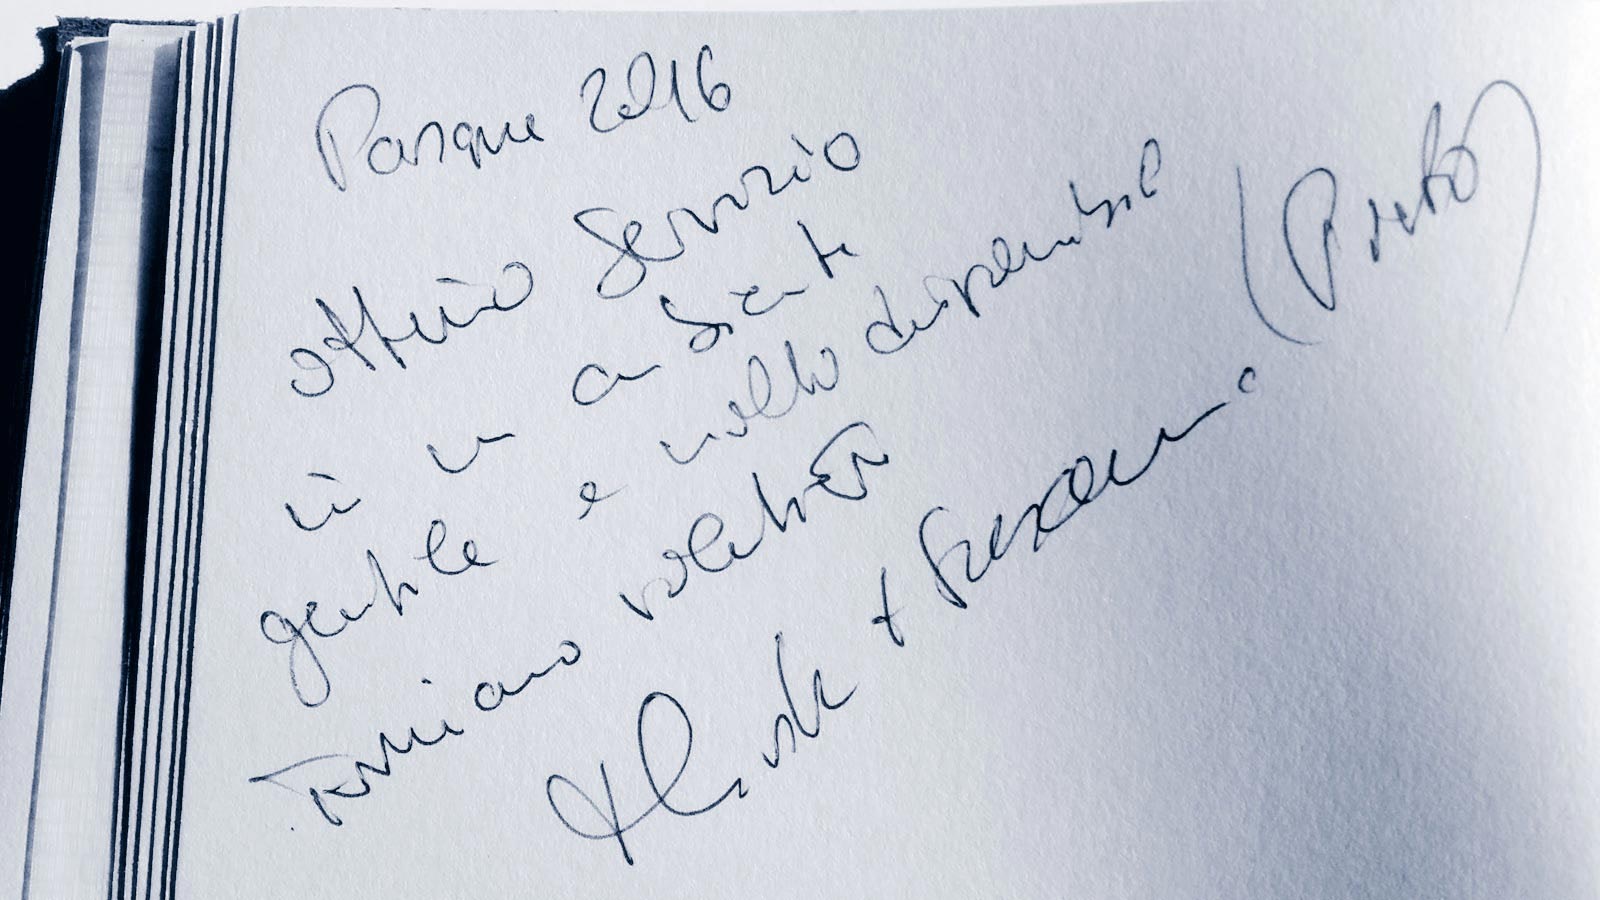 Pasqua 2016
ottimo servizio
in un ambiente
gentile e molto disponibile
Torniamo volentieri
+ Susanna (Prato)